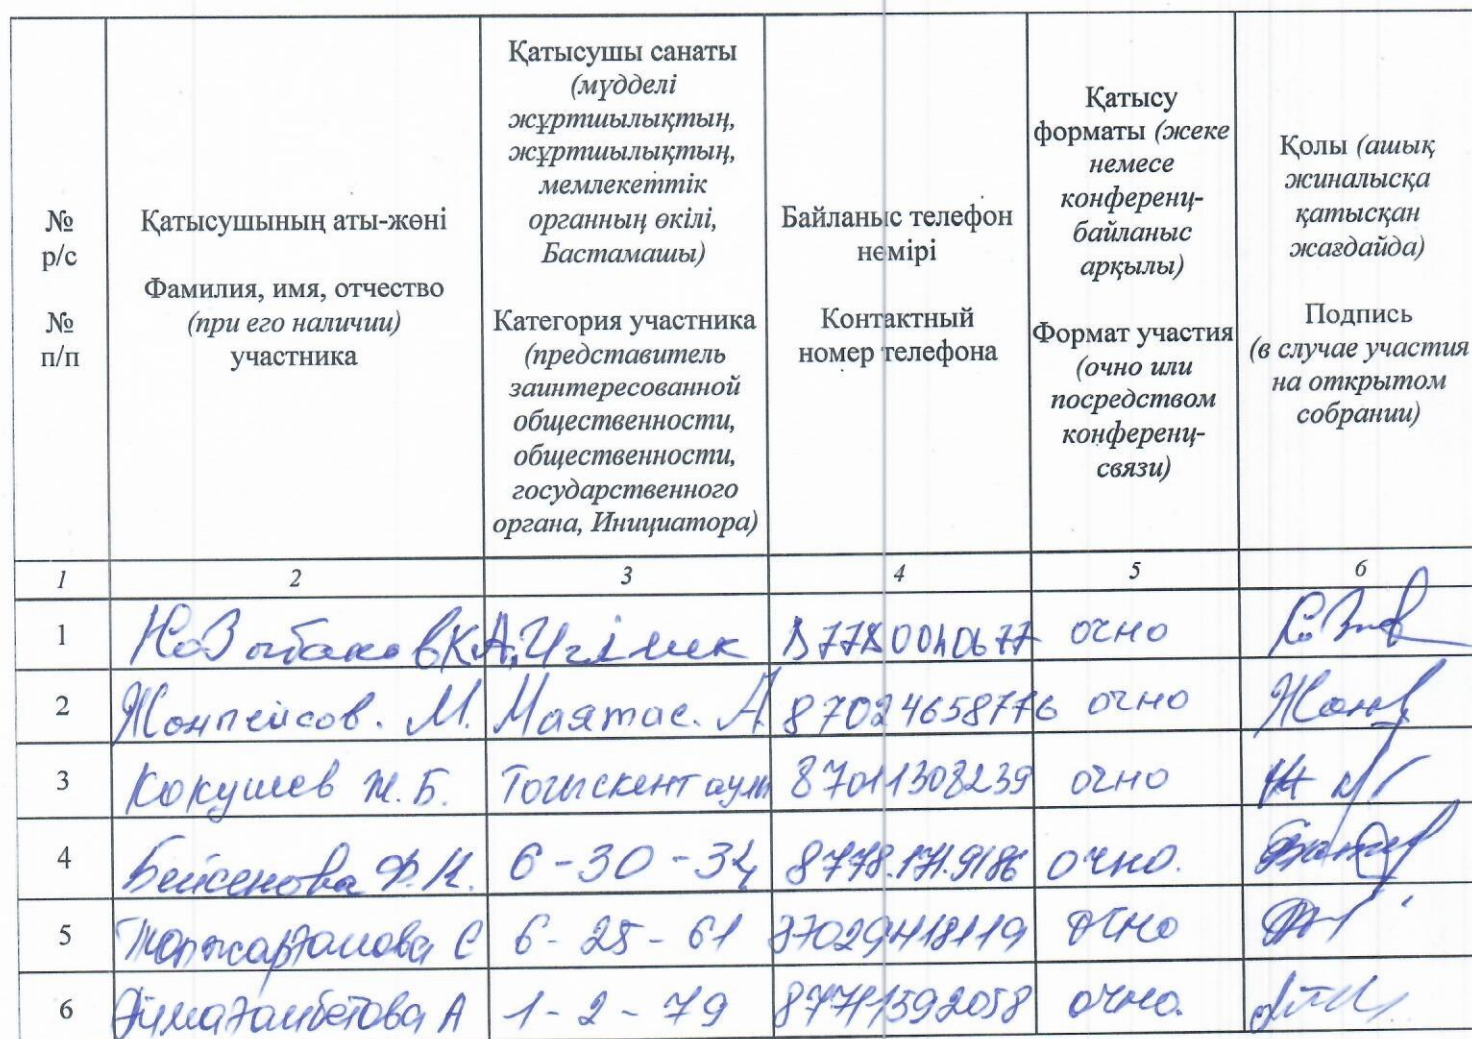 №
р/с
№
п/п
Қатысушының аты-жөні
Фамилия, имя, отчество
(при его наличии)
участника
Қатысушы санаты
(мүдделі
жұртшылықтың,
жұртшылықтың,
мемлекеттік
органның өкілі,
Бастамашы)
Категория участника
(представитель
заинтересованной
общественности,
общественности,
государственного
органа, Инициатора)
Байланыс телефон
немірі
Контактный
номер телефона
Қатысу
форматы (жеке
немесе
конференц-
байланыс
арқылы)
Формат участия
(очно или
посредством
конференц-
связи)
Қолы (ашық
жиналысқа
қатысқан
жағдайда)
Подпись
(в случае участия
на открытом
собрании)
1 2 3 4 5 6
1 очно
2 Жонпейсов. М. Маятас. А 87024658776 очно
3 Кокушев Ж.Б. Тогыскент ауылы 87011308239 очно
4 Бейсенова Ф.К. 6-30-34 8778.171.9186 очно.
5 6-25-61 87029418119 очно
6 1-2-79 87771592058 очно.